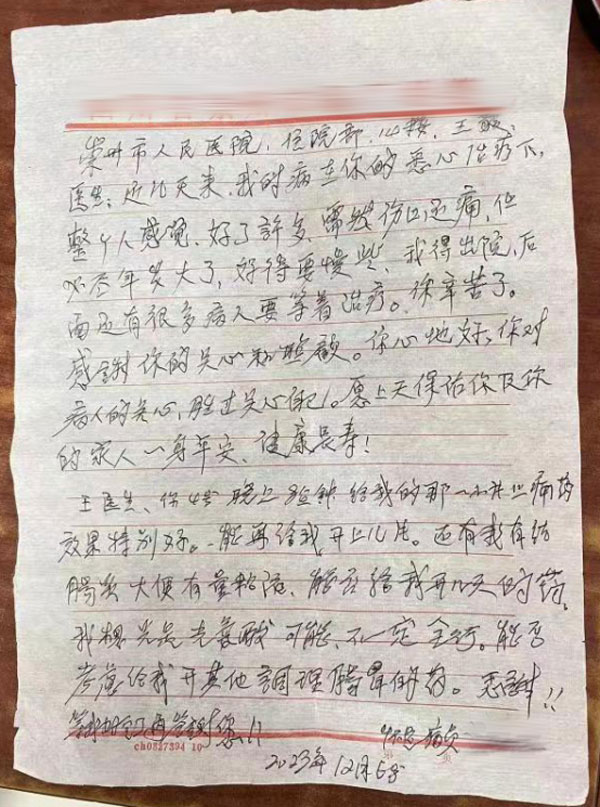 崇州市人民医院,住院部,14楼,王敏,
医生:近几天来,我的病在你的悉心治疗下,
整个人感觉,好了許多,虽然伤口还痛,但
必竟年岁大了,好得要慢些,我得出院,后
面还有很多病人要等着治疗。你辛苦了。
感謝你的关心和照顧。你心地好,你对
病人的关心,胜过关心自己。愿上天保佑你及你
的家人一身平安、健康長寿!
王医生、你4号晚上8点钟给我的那一小片止痛药
效果特别好。能再给我开上几片。还有我有结
腸炎大便有量粘液、能否给我开几天的药,
我想光是
考慮给我开其他調理腸胃的药。
您!!
病员
ch0327394 10
2023年12月5号